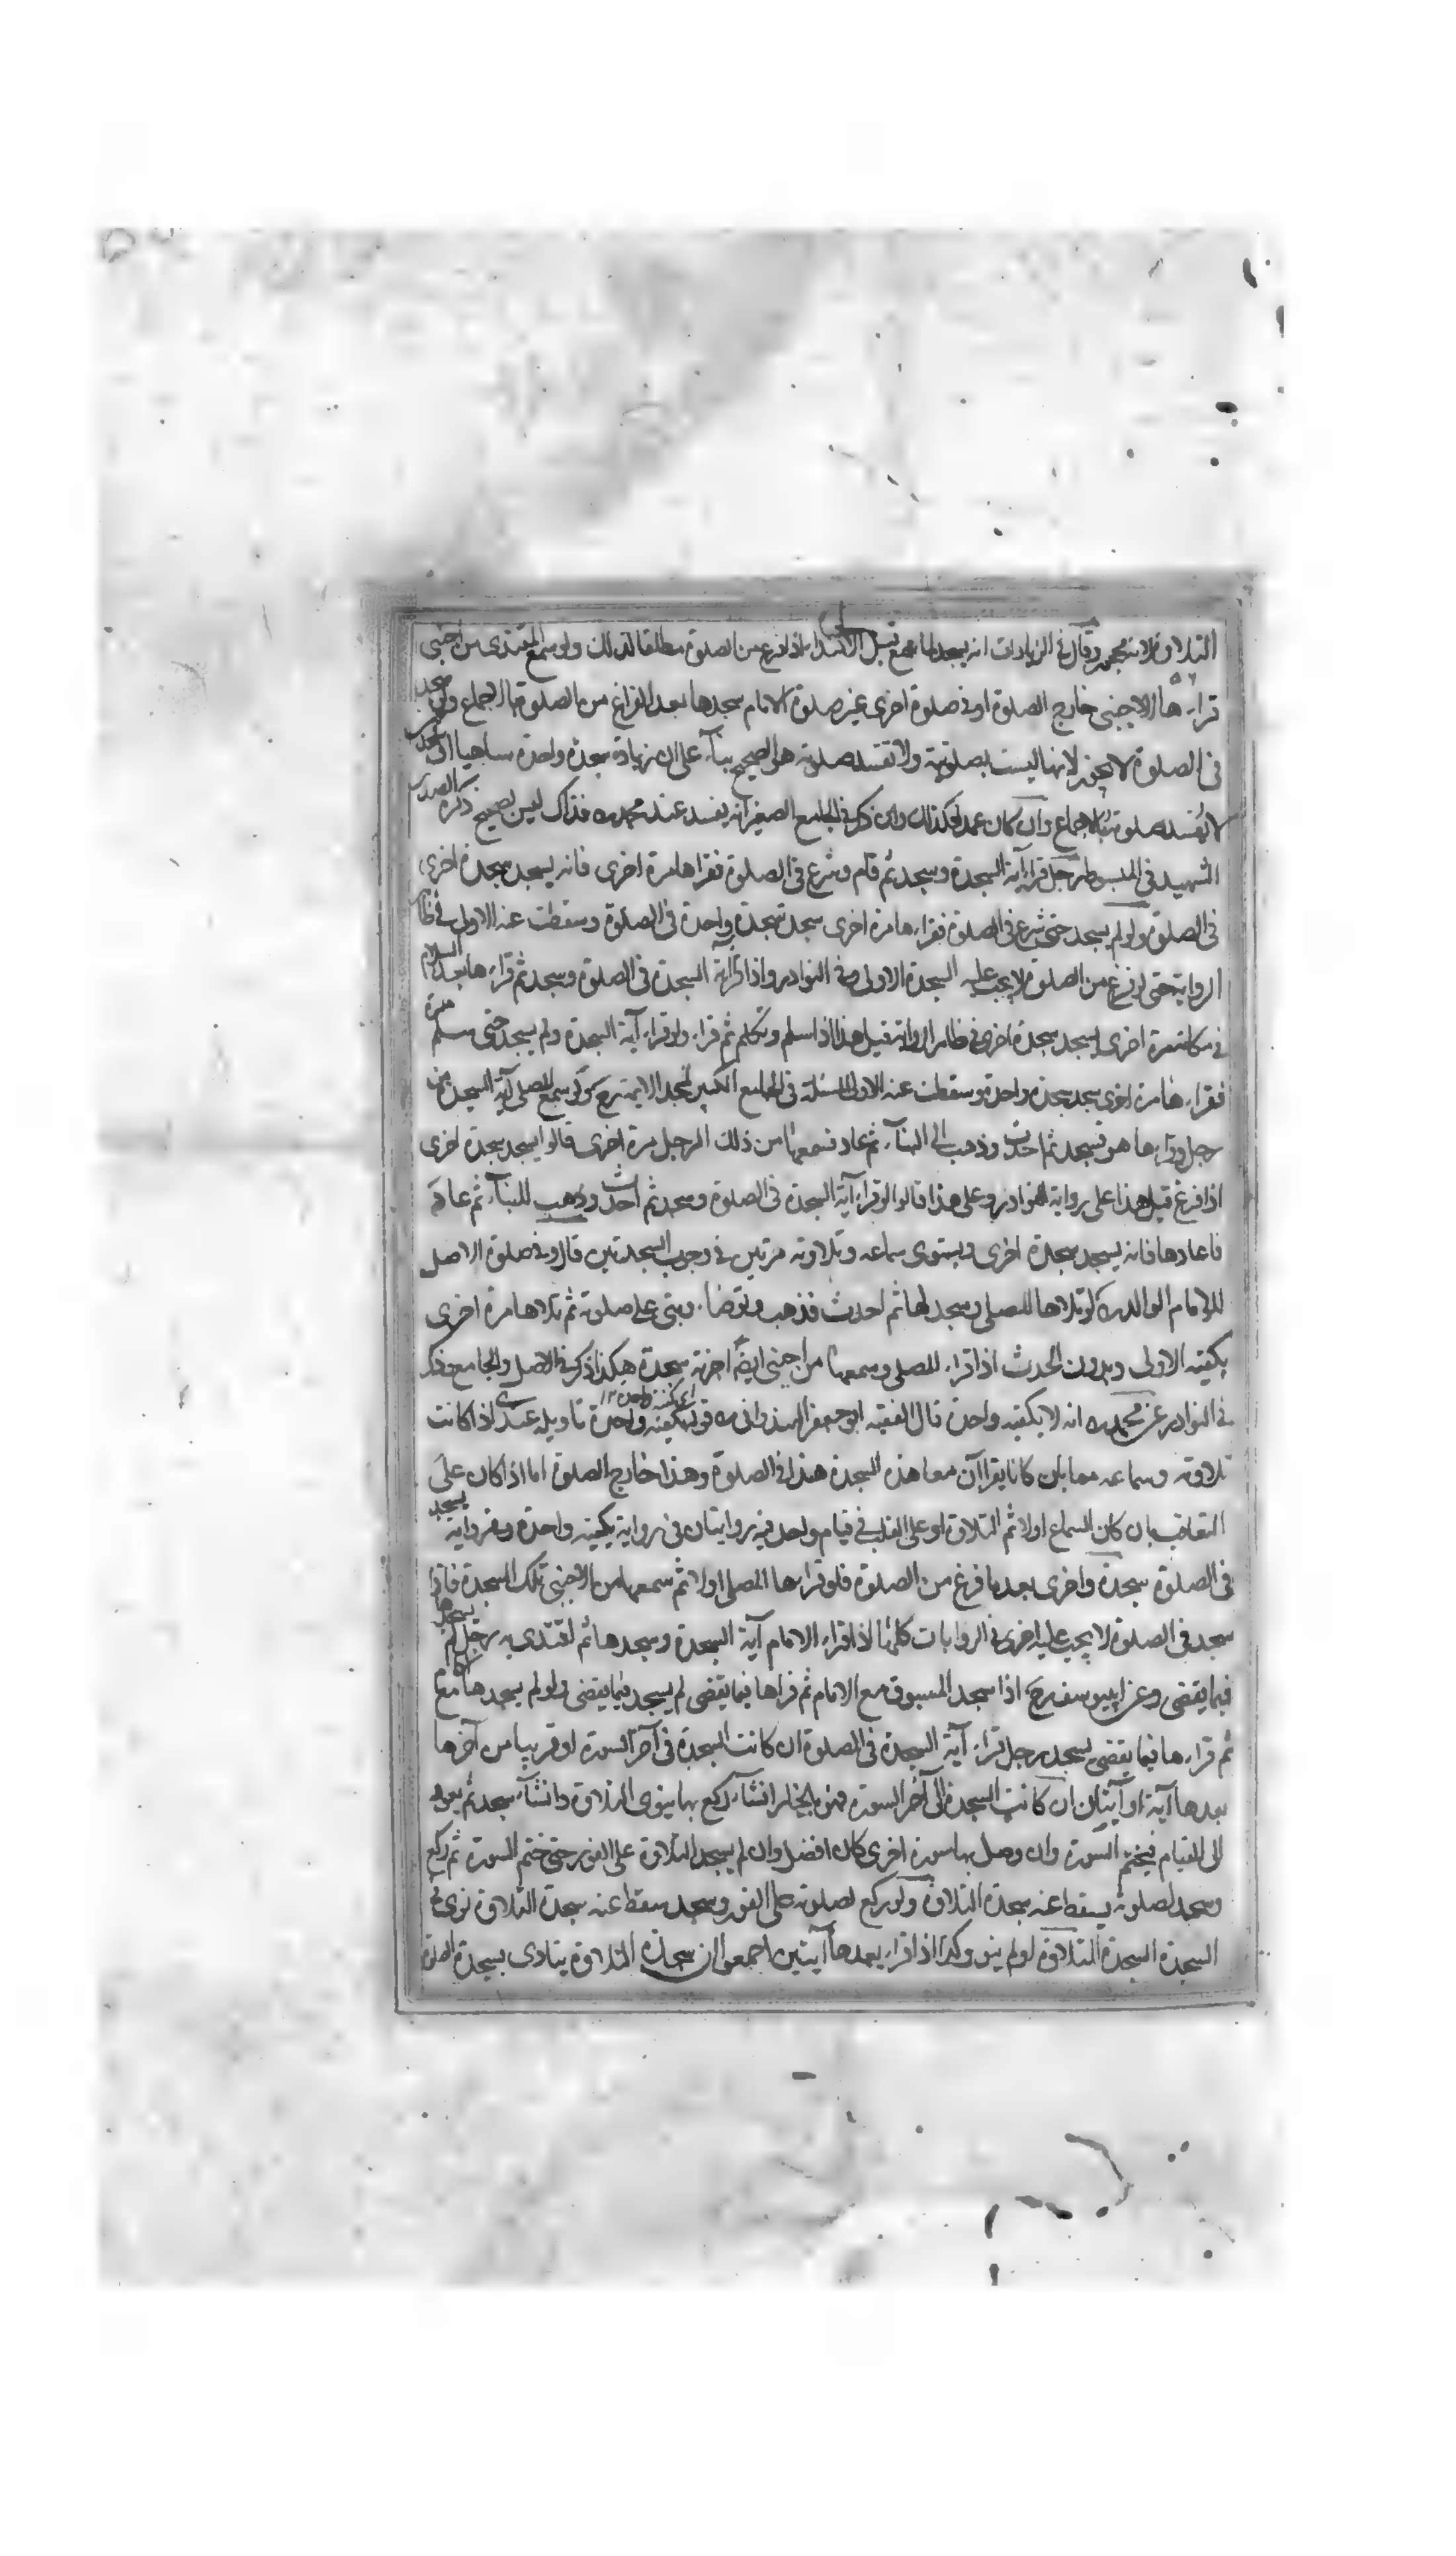 التلاوة فلا سجود وقال في الزيادات انه يسجد لما سمع قبل الاقتداء اذا فرغ من الصلوة مطلقا لذلك ولو سمع المقتدى من اجنبي
قراءها الاجنبي خارج الصلوة او في صلوة اخرى غير صلوة الامام سجدها بعد الفراغ من الصلوة بالاجماع ولو سجد
في الصلوة لا يجوز لانها ليست بصلوتية ولا تفسد صلوته هو الصحيح بناء على ان زيادة سجدة واحدة ساهيا او
لا تفسد صلوته بالاجماع وان كان عمدا فكذلك وان ذكر في الجامع الصغير انه يفسد عند محمد ره فذاك ليس بصحيح ذكره الصدر
الشهيد في المبسوط رجل قرا آية السجدة وسجد ثم قام وشرع في الصلوة فقراها مرة اخرى فانه يسجد سجدة اخرى
في الصلوة ولو لم يسجد حتى شرع في الصلوة فقراءها مرة اخرى سجد سجدة واحدة في الصلوة وسقطت عنه الاولى في ظاهر
الرواية حتى لو فرغ من الصلوة لا يجب عليه السجدة الاولى وفي النوادر واذا قرا آية السجدة في الصلوة وسجد ثم قراءها بعد السلام
في مكانه مرة اخرى يسجد سجدة اخرى في ظاهر الرواية قيل هذا اذا سلم وتكلم ثم قراء ولو قراء آية السجدة ولم يسجد حتى سلم
فقراءها مرة اخرى سجد سجدة واحدة وسقطت عنه الاولى المسئلة في الجامع الكبير لمجد الايمة ولو سمع المصلي آية السجدة من
رجل وقراءها هو فسجد ثم احدث وذهب الى البناء ثم عاد فسمعها من ذلك الرجل مرة اخرى قالوا يسجد سجدة اخرى
اذا فرغ قيل هذا على رواية النوادر وعلى هذا قالوا لو قراء آية السجدة في الصلوة وسجد ثم احدث وذهب للبناء ثم عاد
فاعادها فانه يسجد سجدة اخرى ويستوى سماعه وتلاوته مرتين في وجوب السجدتين قال وفي صلوة الاصل
للامام الوالد ره لو تلاها المصلي وسجد لها ثم احدث فذهب وتوضاء وبنى على صلوته ثم تلاها مرة اخرى
يكفيه الاولى وبدون الحدث اذا قراء المصلي وسمعها من اجنبي ايضا اجزته سجدة هكذا ذكر في الاصل والجامع وذكر
في النوادر عن محمد ره انه لا يكفيه واحدة قال الفقيه ابو جعفر الهندواني ره قوله يكفيه واحدة تاويله عندى اذا كانت
تلاوته وسماعه معا بان كانا يقرا آن معا هذه السجدة هذا في الصلوة وهذا خارج الصلوة اما اذا كان على
التعاقب بان كان السماع اولا ثم التلاوة او على القلب في قيام واحد فيه روايتان في رواية يكفيه واحدة وفي رواية يسجد
في الصلوة سجدة واخرى بعد ما فرغ من الصلوة فلو قراءها المصلي اولا ثم سمعها من الاجنبي تلك السجدة فاذا
سجد في الصلوة لا يجب عليه اخرى في الروايات كلها اذا قراء الامام آية السجدة وسجدها ثم اقتدى به رجل لم يسجدها
فيما يقضى وعن ابي يوسف رح اذا سجد المسبوق مع الامام ثم قراها فيما يقضى لم يسجد فيما يقضى ولو لم يسجدها مع الامام
ثم قراءها فيما يقضى يسجد رجل قراء آية السجدة في الصلوة ان كانت السجدة في آخر السورة او قريبا من آخرها
بعدها آية او آيتان ان كانت السجدة الى آخر السورة فهو بالخيار ان شاء ركع بها ينوى التلاوة وان شاء سجد ثم يعود
الى القيام فيختم السورة وان وصل بها سورة اخرى كان افضل وان لم يسجد التلاوة على الفور حتى ختم السورة ثم ركع
وسجد لصلوته يسقط عنه سجدة التلاوة ولو ركع لصلوته على الفور وسجد سقط عنه سجدة التلاوة نوى في
السجدة السجدة التلاوة او لم ينو وكذا اذا قراء بعدها آيتين اجمعوا ان سجدة التلاوة يتادى بسجدة الصلوة